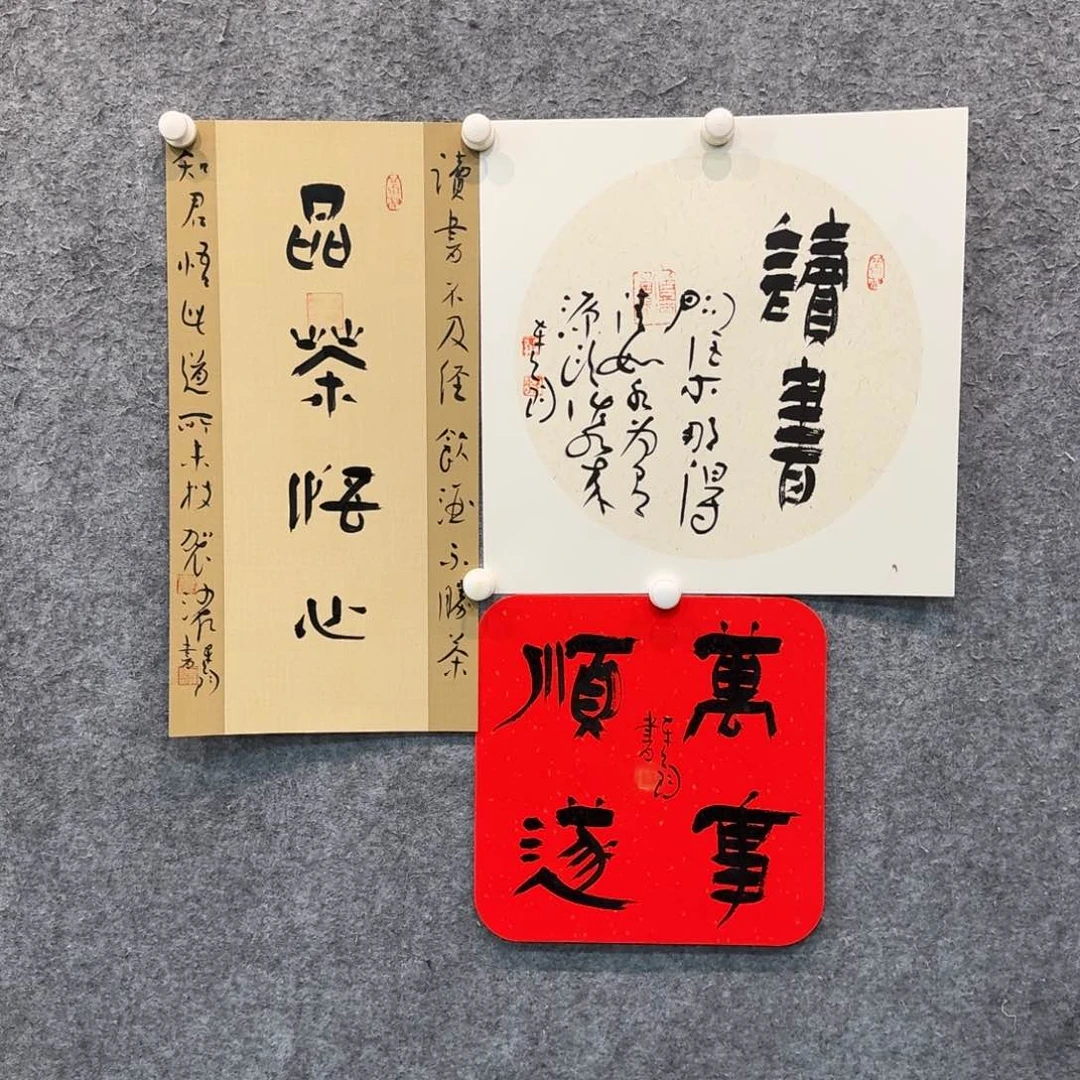 讀書不及經飲酒不勝茶
品茶悟心
知君悟此道所未披袈裟
書
讀書
問渠那得
清如許為有
源頭活水来
萬事
順遂
書